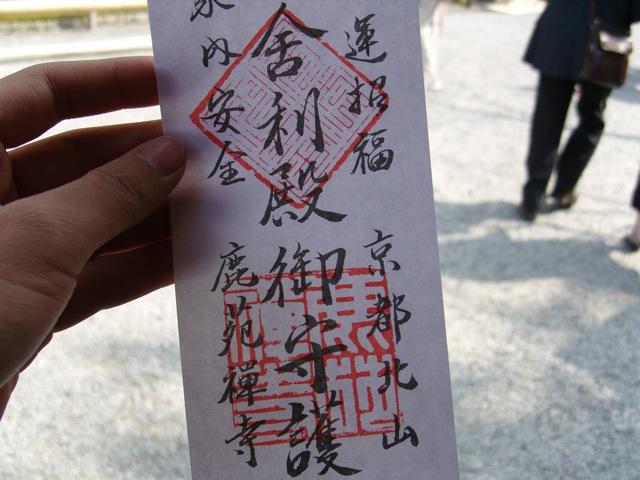 運招福
京都北山
舎利殿
御守護
家内安全
鹿苑禅寺